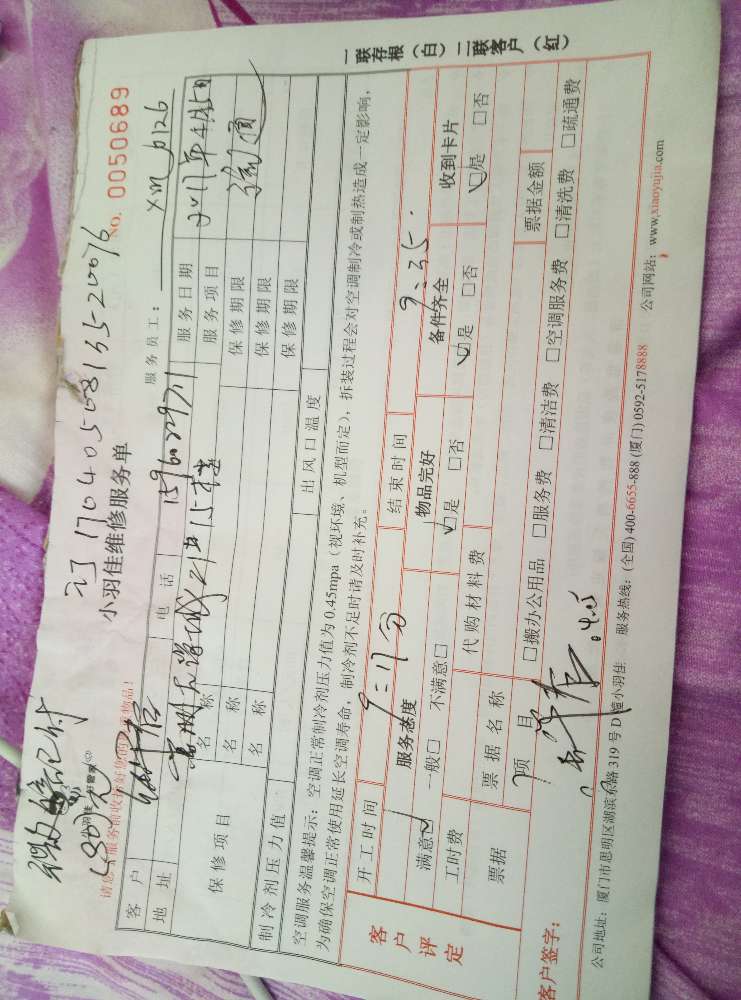 订17040508135520076
微信已付
180元
小羽佳维修服务单
No. 0050689
请您在服务前收拾好您的贵重物品!
服务员工: xm_6126
客户 电话 服务日期 2017年4月5日
地址 21#15楼 服务项目
保修项目 名称 保修期限
名称 保修期限
名称 保修期限
制冷剂压力值 出风口温度
空调服务温馨提示:空调正常制冷剂压力值为0.45mpa(视环境、机型而定),拆装过程会对空调制冷或制热造成一定影响,
为确保空调正常使用延长空调寿命,制冷剂不足时请及时补充。
客户评定
开工时间 9:17分 结束时间 9:35.
服务态度 物品完好 备件齐全 收到卡片
满意☑ 一般□ 不满意□ ☑是 □否 ☑是 □否 ☑是 □否
工时费 代购材料费
票据 票据名称 票据金额
项目 □搬办公用品 □服务费 □清洁费 □空调服务费 □清洗费 □疏通费
客户签字:
公司地址:厦门市思明区湖滨东路319号D幢小羽佳 服务热线:(全国)400-6655-888 (厦门)0592-5178888 公司网站:www.xiaoyujia.com
一联存根(白)二联客户(红)